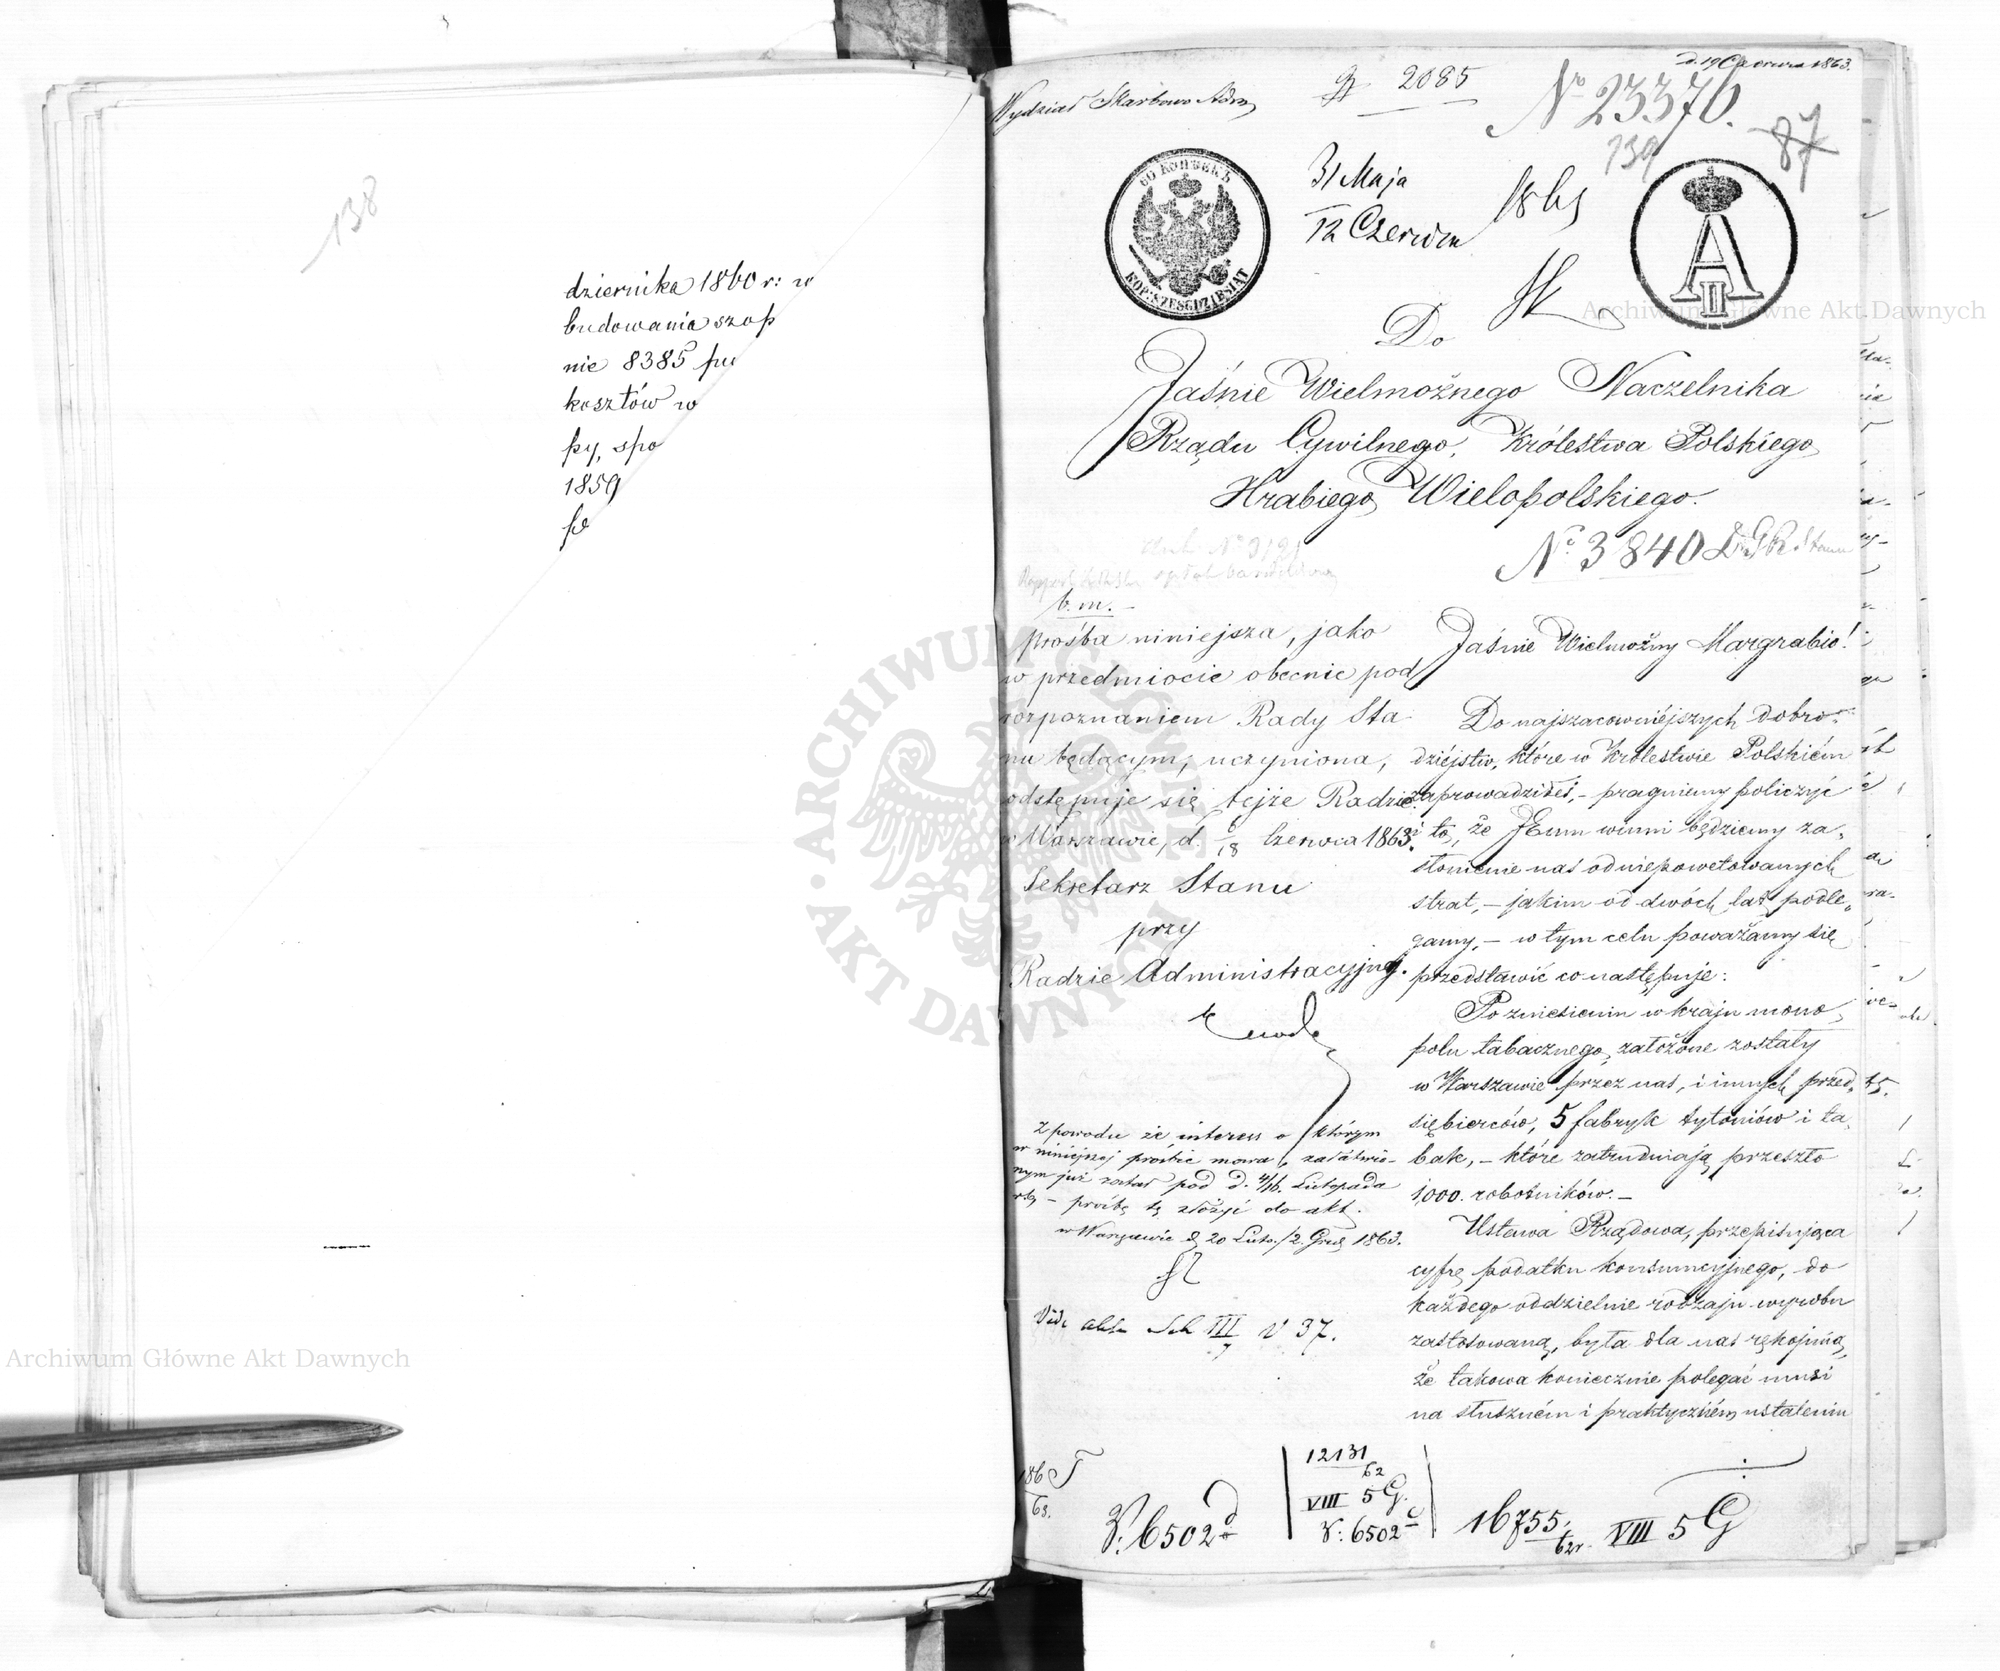 138
dziernika 1860 r: w
budowania szop
nie 8385 pu
kosztów w
py, spo
1859
Wydział Skarbowo Adm
2085
d. 19 Czerwca 1863.
No 23370.
139
87
60 КОПѢЕКЪ
KOP: SZEŚĆDZIESIĄT
31 Maja
12 Czerwca
1863
A II
Do
Jaśnie Wielmożnego Naczelnika
Rządu Cywilnego, Królestwa Polskiego
Hrabiego Wielopolskiego.
No 3840
b. m. –
prośba niniejsza, jako
w przedmiocie obecnie pod
rozpoznaniem Rady Sta
nu będącym, uczyniona,
odstępuje się tejże Radzie.
w Warszawie, d. 6/18 Czerwca 1863.
Sekretarz Stanu
przy
Radzie Administracyjnej.
Z powodu że interess o którym
w niniejszej prośbie mowa, załatwio-
nym już został pod d. 4/16. Listopada
r. b., – prośbę tę złożyć do akt.
w Warszawie d. 20 List./2. Grud. 1863.
Vide akta III/7 V 37.
Jaśnie Wielmożny Margrabio!
Do najszacowniejszych dobro-
dziéjstw, które w Królestwie Polskiém
zaprowadziłeś, – pragniemy policzyć
i to, że JEmu winni będziemy za-
słonienie nas od niepowetowanych
strat, – jakim od dwóch lat podle-
gamy, – w tym celu poważamy się
przedstawić co następuje:
Po zniesieniu w kraju mono-
polu tabacznego, założone zostały
w Warszawie przez nas, i innych przed-
siębierców, 5 fabryk tytoniów i ta-
bak, – które zatrudniają przeszło
1,000. robotników. –
Ustawa Rządowa, przepisująca
cyfrę podatku konsumcyjnego, do
każdego oddzielnie rodzaju wyrobu
zastosowaną, była dla nas rękojmią,
że takowa koniecznie polegać musi
na słuszném i praktyczném ustaleniu
6502
12131/62
VIII 5 G.
6502
16755/62r.
VIII 5 G
Archiwum Główne Akt Dawnych
ARCHIWUM GŁÓWNE AKT DAWNYCH
Archiwum Główne Akt Dawnych